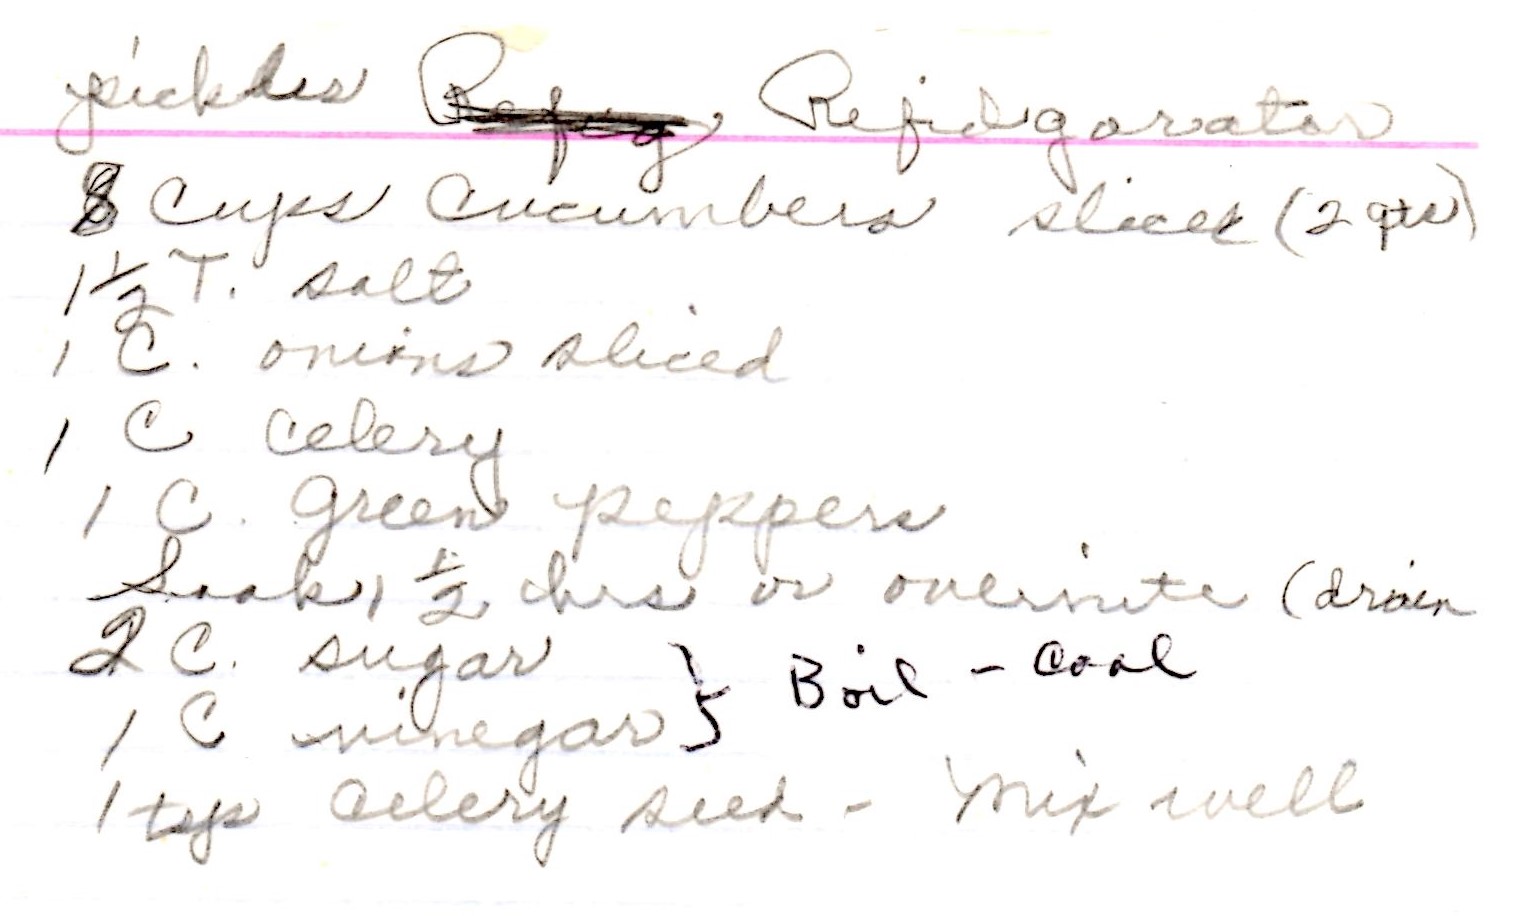 pickles Refrigarator
8 cups cucumbers sliced (2 qts)
1 1/2 T. salt
1 C. onions sliced
1 C celery
1 C. green peppers
Soak 1 1/2 hrs or overnite (drain
2 C. sugar } Boil - cool
1 C vinegar
1 tsp celery seed - mix well